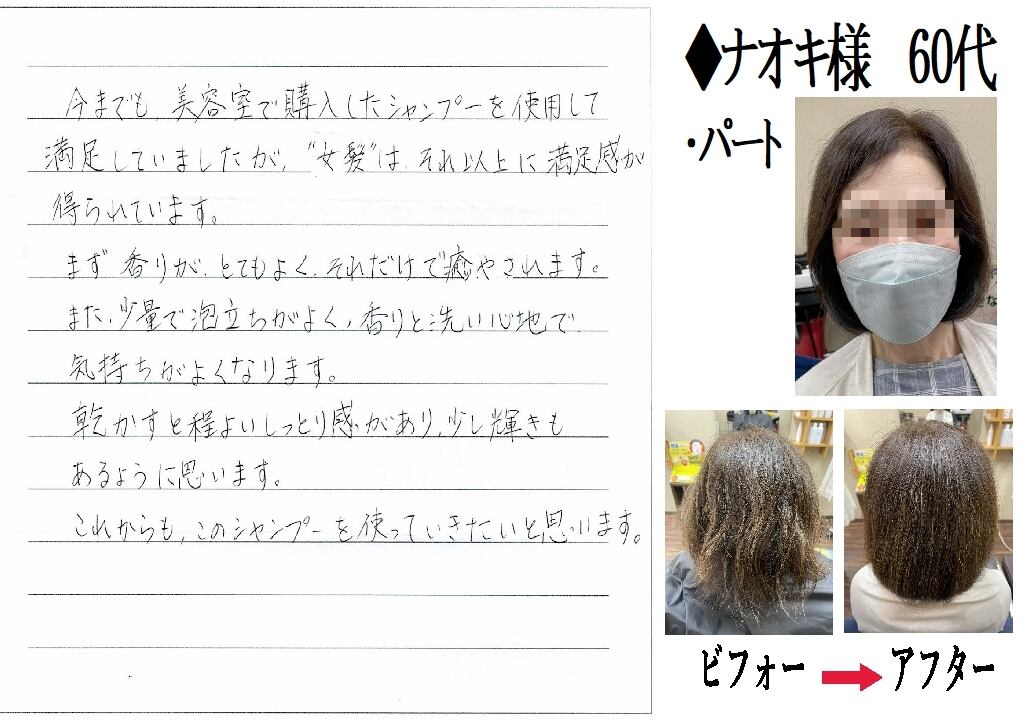 今までも、美容室で購入したシャンプーを使用して
満足していましたが、"女髪"は、それ以上に満足感が
得られています。
まず香りが、とてもよく、それだけで癒やされます。
また、少量で泡立ちがよく、香りと洗い心地で
気持ちがよくなります。
乾かすと程よいしっとり感があり、少し輝きも
あるように思います。
これからも、このシャンプーを使っていきたいと思います。
◆ナオキ様 60代
・パート
ビフォー
アフター